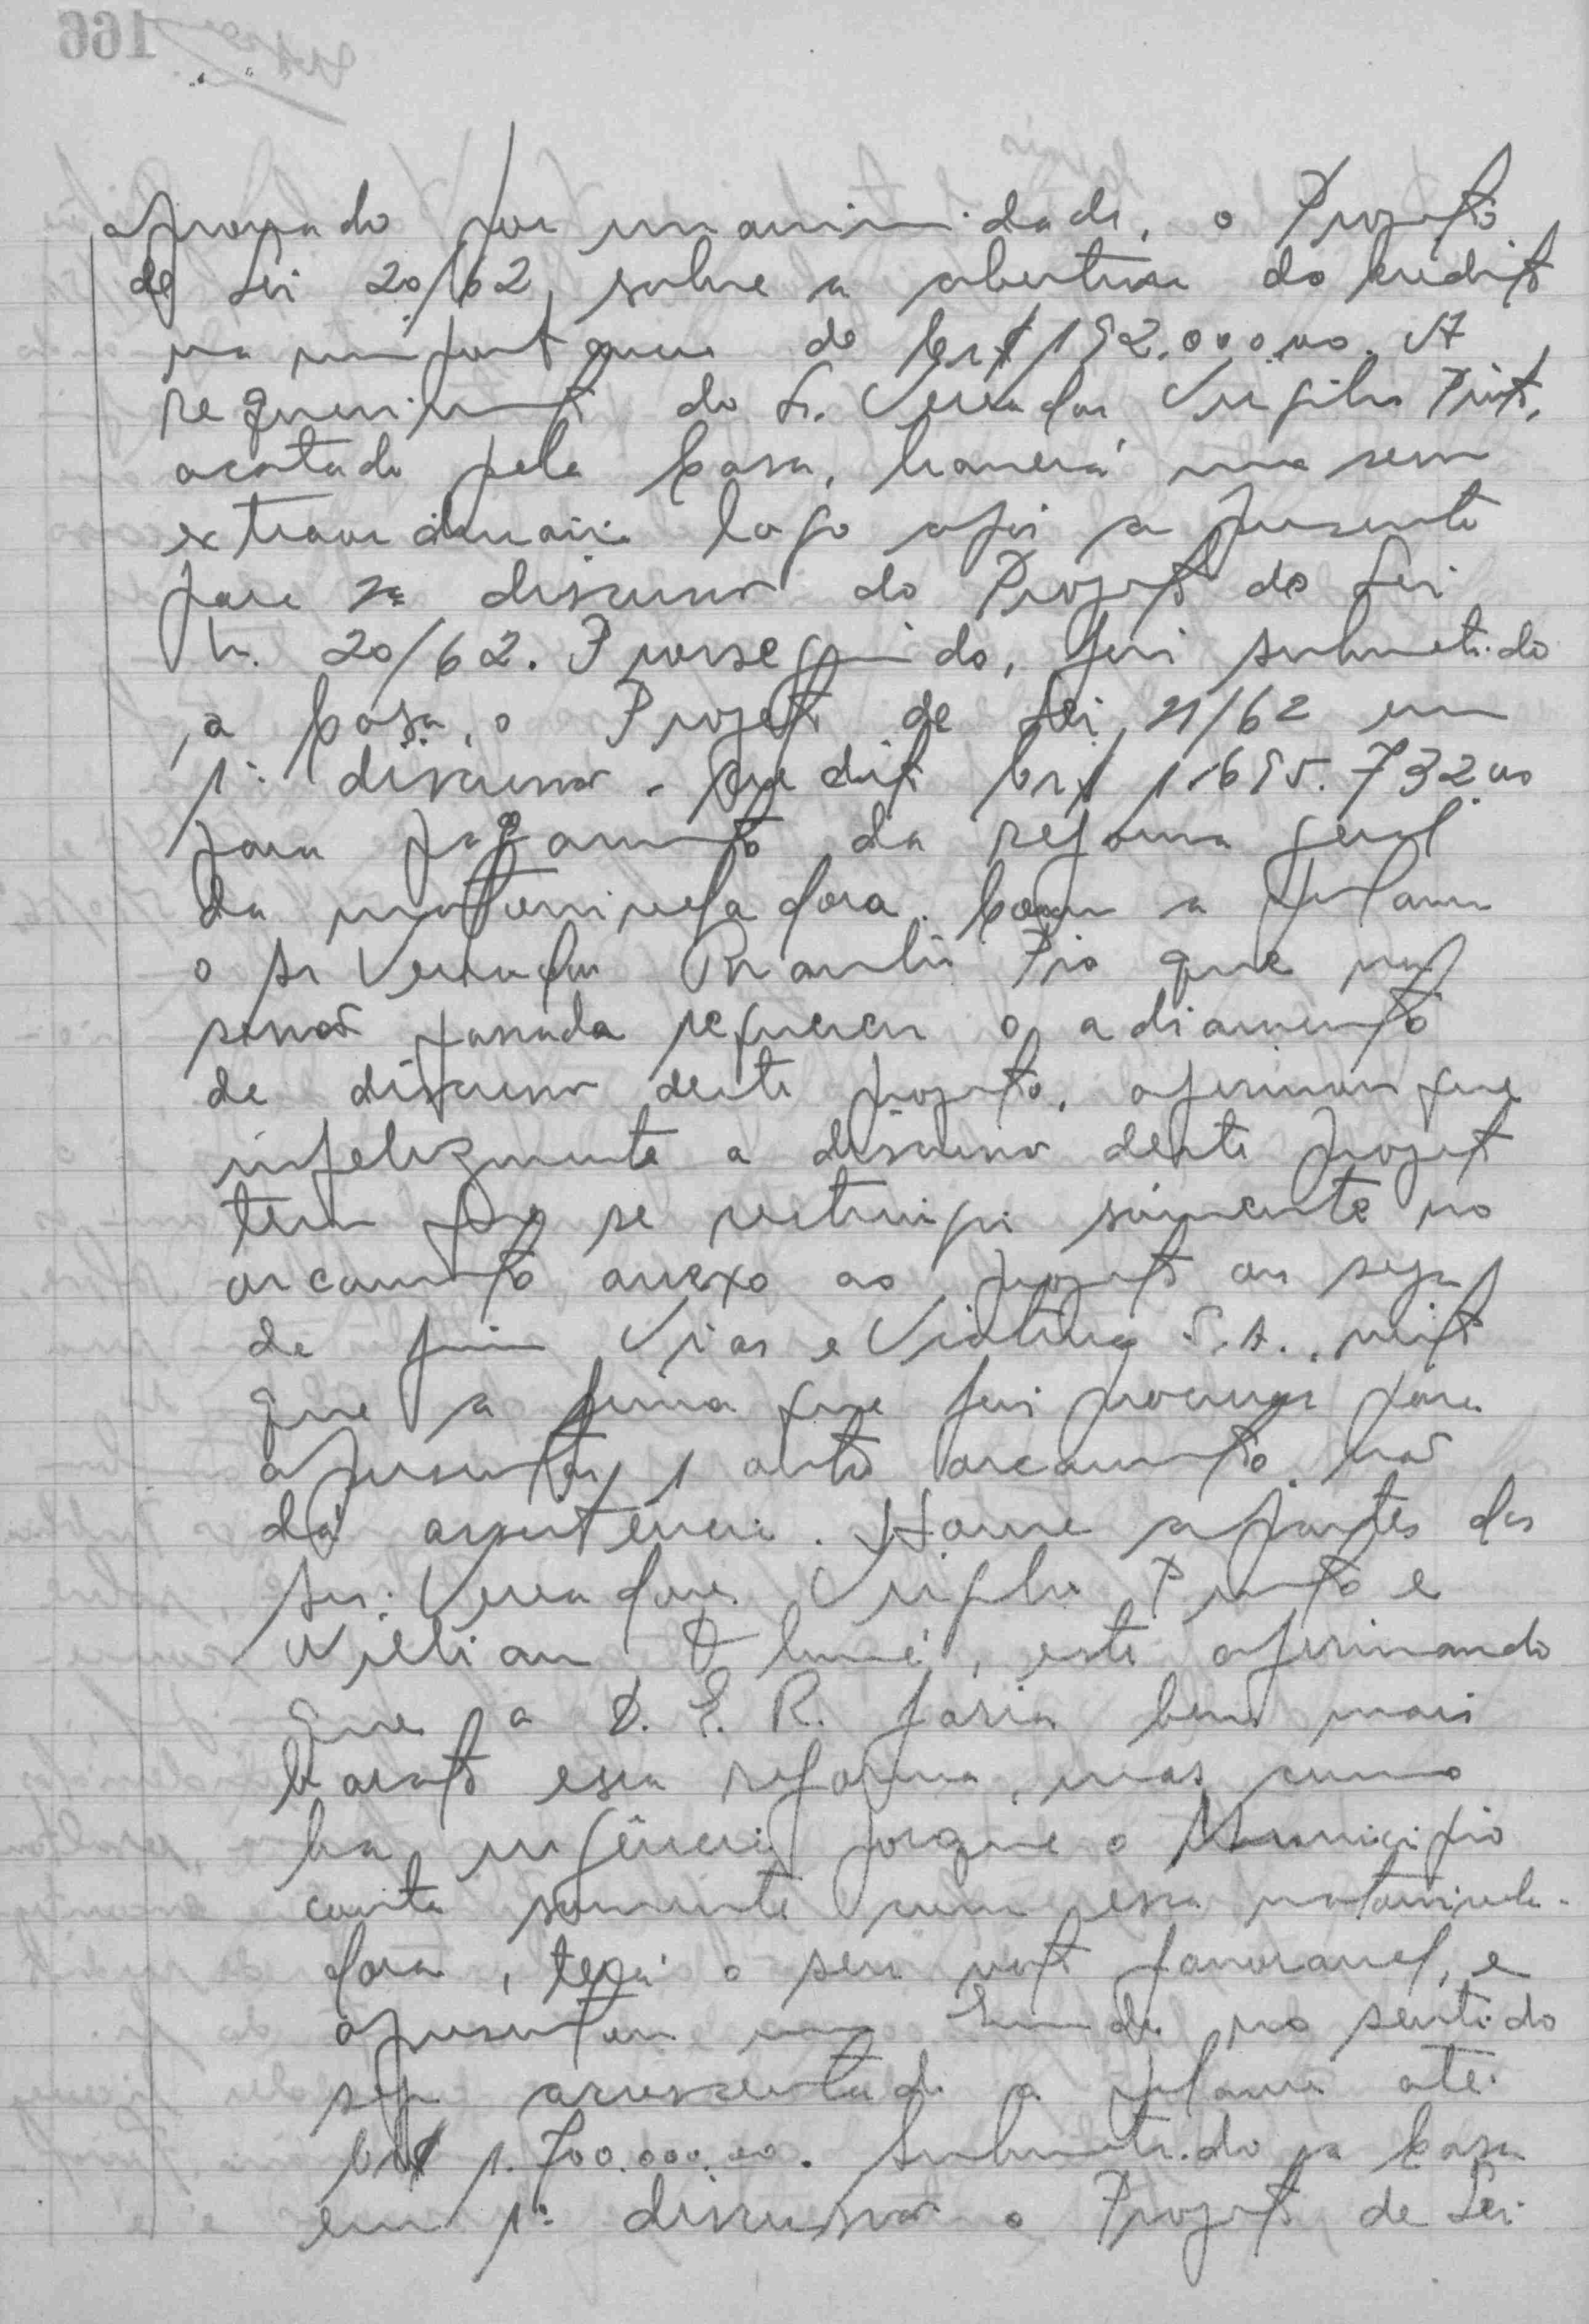 aprovado por unanimidade, o Projeto
de Lei 20/62, sobre a abertura do credito
na importancia de Cr$ 192.000,00. A
requerimento do Sr. Vereador Virgilio Pinto,
acatado pela Casa, haverá uma sessão
extraordinaria logo após a presente
para 2ª discussão do Projeto de Lei
n. 20/62. Prosseguindo, foi submetido
a Casa, o Projeto de Lei 21/62 em
1ª discussão. Credito Cr$ 1.695.732,00
para pagamento da reforma geral
da motoniveladora. Com a palavra
o Sr Vereador Braulio Pio que na
sessão passada requereu o adiamento
de discussão deste projeto, afirmou que
infelizmente a discussão deste projeto
tem que se restringir somente no
orçamento anexo ao projeto ou seja
da firma S.A., visto
que a firma que foi procurar para
apresentar 1 outro orçamento não
dá assistência. Houve apartes dos
Srs. Vereadores Virgilio Pinto e
Willian, este afirmando
que a D. E. R. faria bem mais
barato essa reforma, mas como
ha urgência porque o Municipio
conta somente com essa motonivela-
dora, terá o seu voto favoravel, e
apresentou uma Emenda no sentido
seja acrescentado a palavra até
Cr$ 1.700.000,00. Submetido a Casa
em 1ª discussão o Projeto de Lei